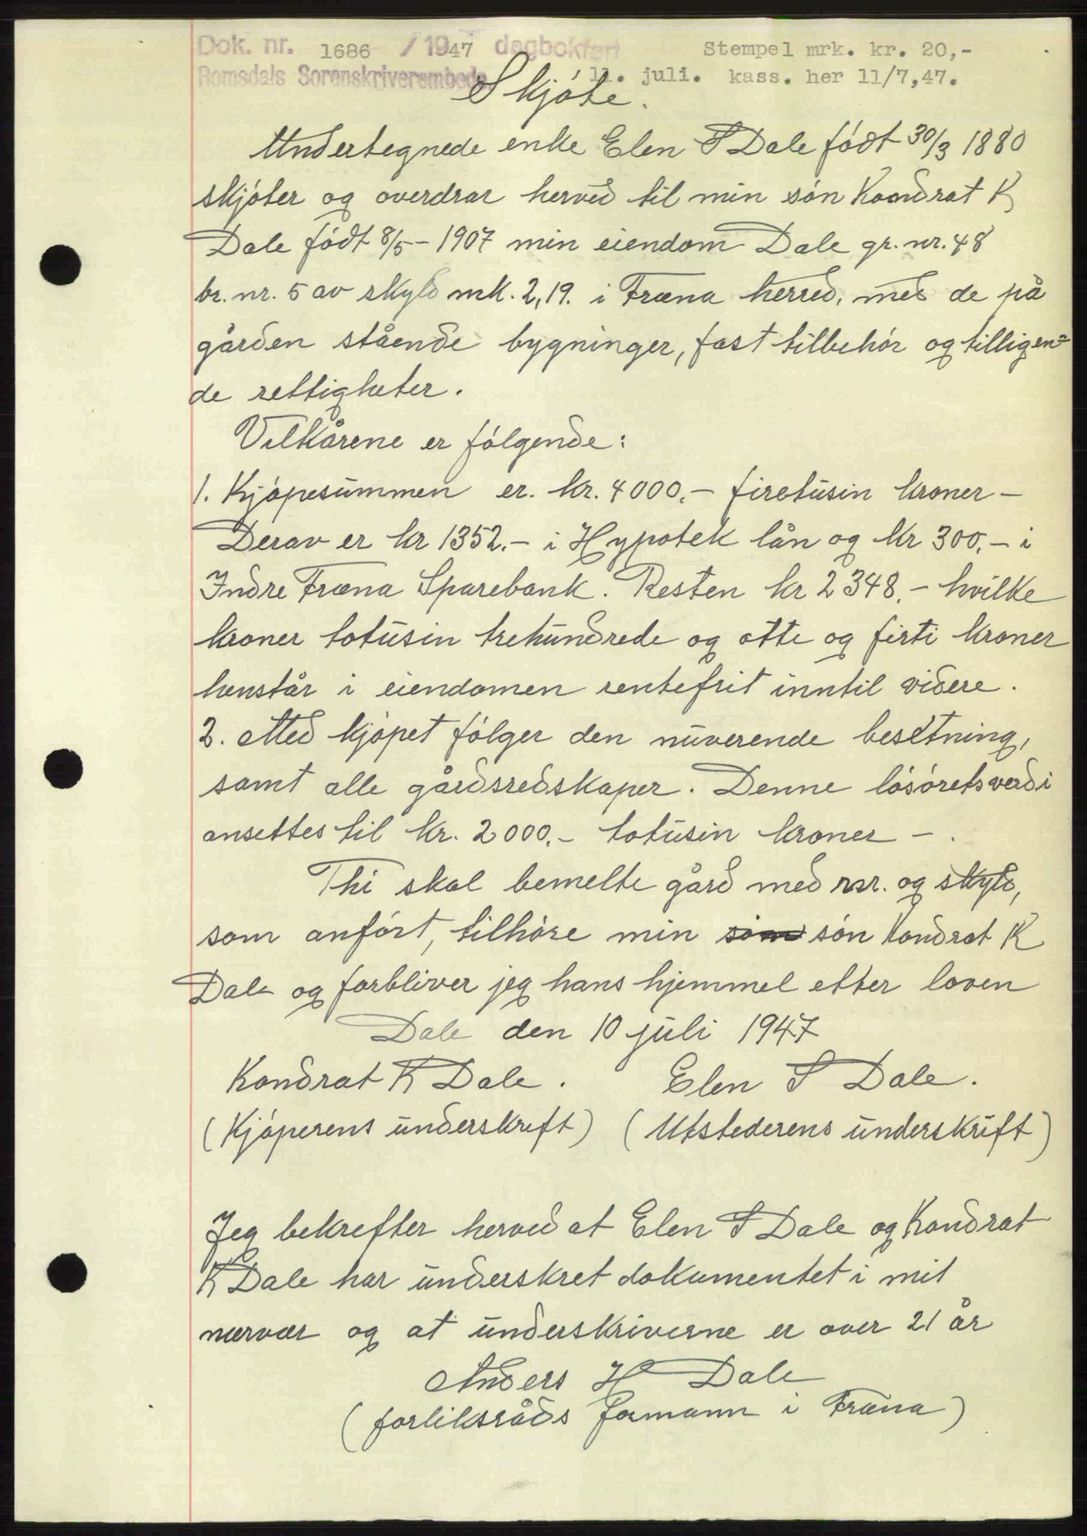 Dok. nr. 1686 / 1947 dagbokført Stempel mrk. kr. 20,-
Romsdals Sorenskriverembede 11. juli. kass. her 11/7,47.
Skjøte.
Undertegnede enke Elen S Dale født 30/3 1880
skjøter og overdrar herved til min søn Kondrat K
Dale født 8/5-1907 min eiendom Dale gr. nr. 48
br. nr. 5 av skyld mk. 2,19. i Fræna herred, med de på
gården stående bygninger, fast tilbehør og tilligen=
de rettigheter.
Vilkårene er følgende:
1. Kjøpesummen er. kr. 4000,- firetusin kroner -
Derav er kr 1352.- i Hypotek lån og kr 300,- i
Indre Fræna Sparebank. Resten kr 2348.- hvilke
kroner totusin trehundrede og otte og førti kroner
henstår i eiendomen rentefrit inntil videre.
2. Med kjøpet følger den nuverende besetning,
samt alle gårdsredskaper. Denne løsøretsverdi
ansettes til kr. 2000.- totusin kroner -.
Thi skal bemelte gård med nr. og skyld,
som anført, tilhøre min som søn Kondrat K
Dale og forbliver jeg hans hjemmel etter loven
Dale den 10 juli 1947
Kondrat K Dale. Elen S Dale.
(Kjøperens underskrift) (Utstederens underskrift)
Jeg bekrefter herved at Elen S Dale og Kondrat
K Dale har underskret dokumentet i mit
nærvær og at underskriverne er over 21 år
Anders H Dale
(forliksråds formann i Fræna)